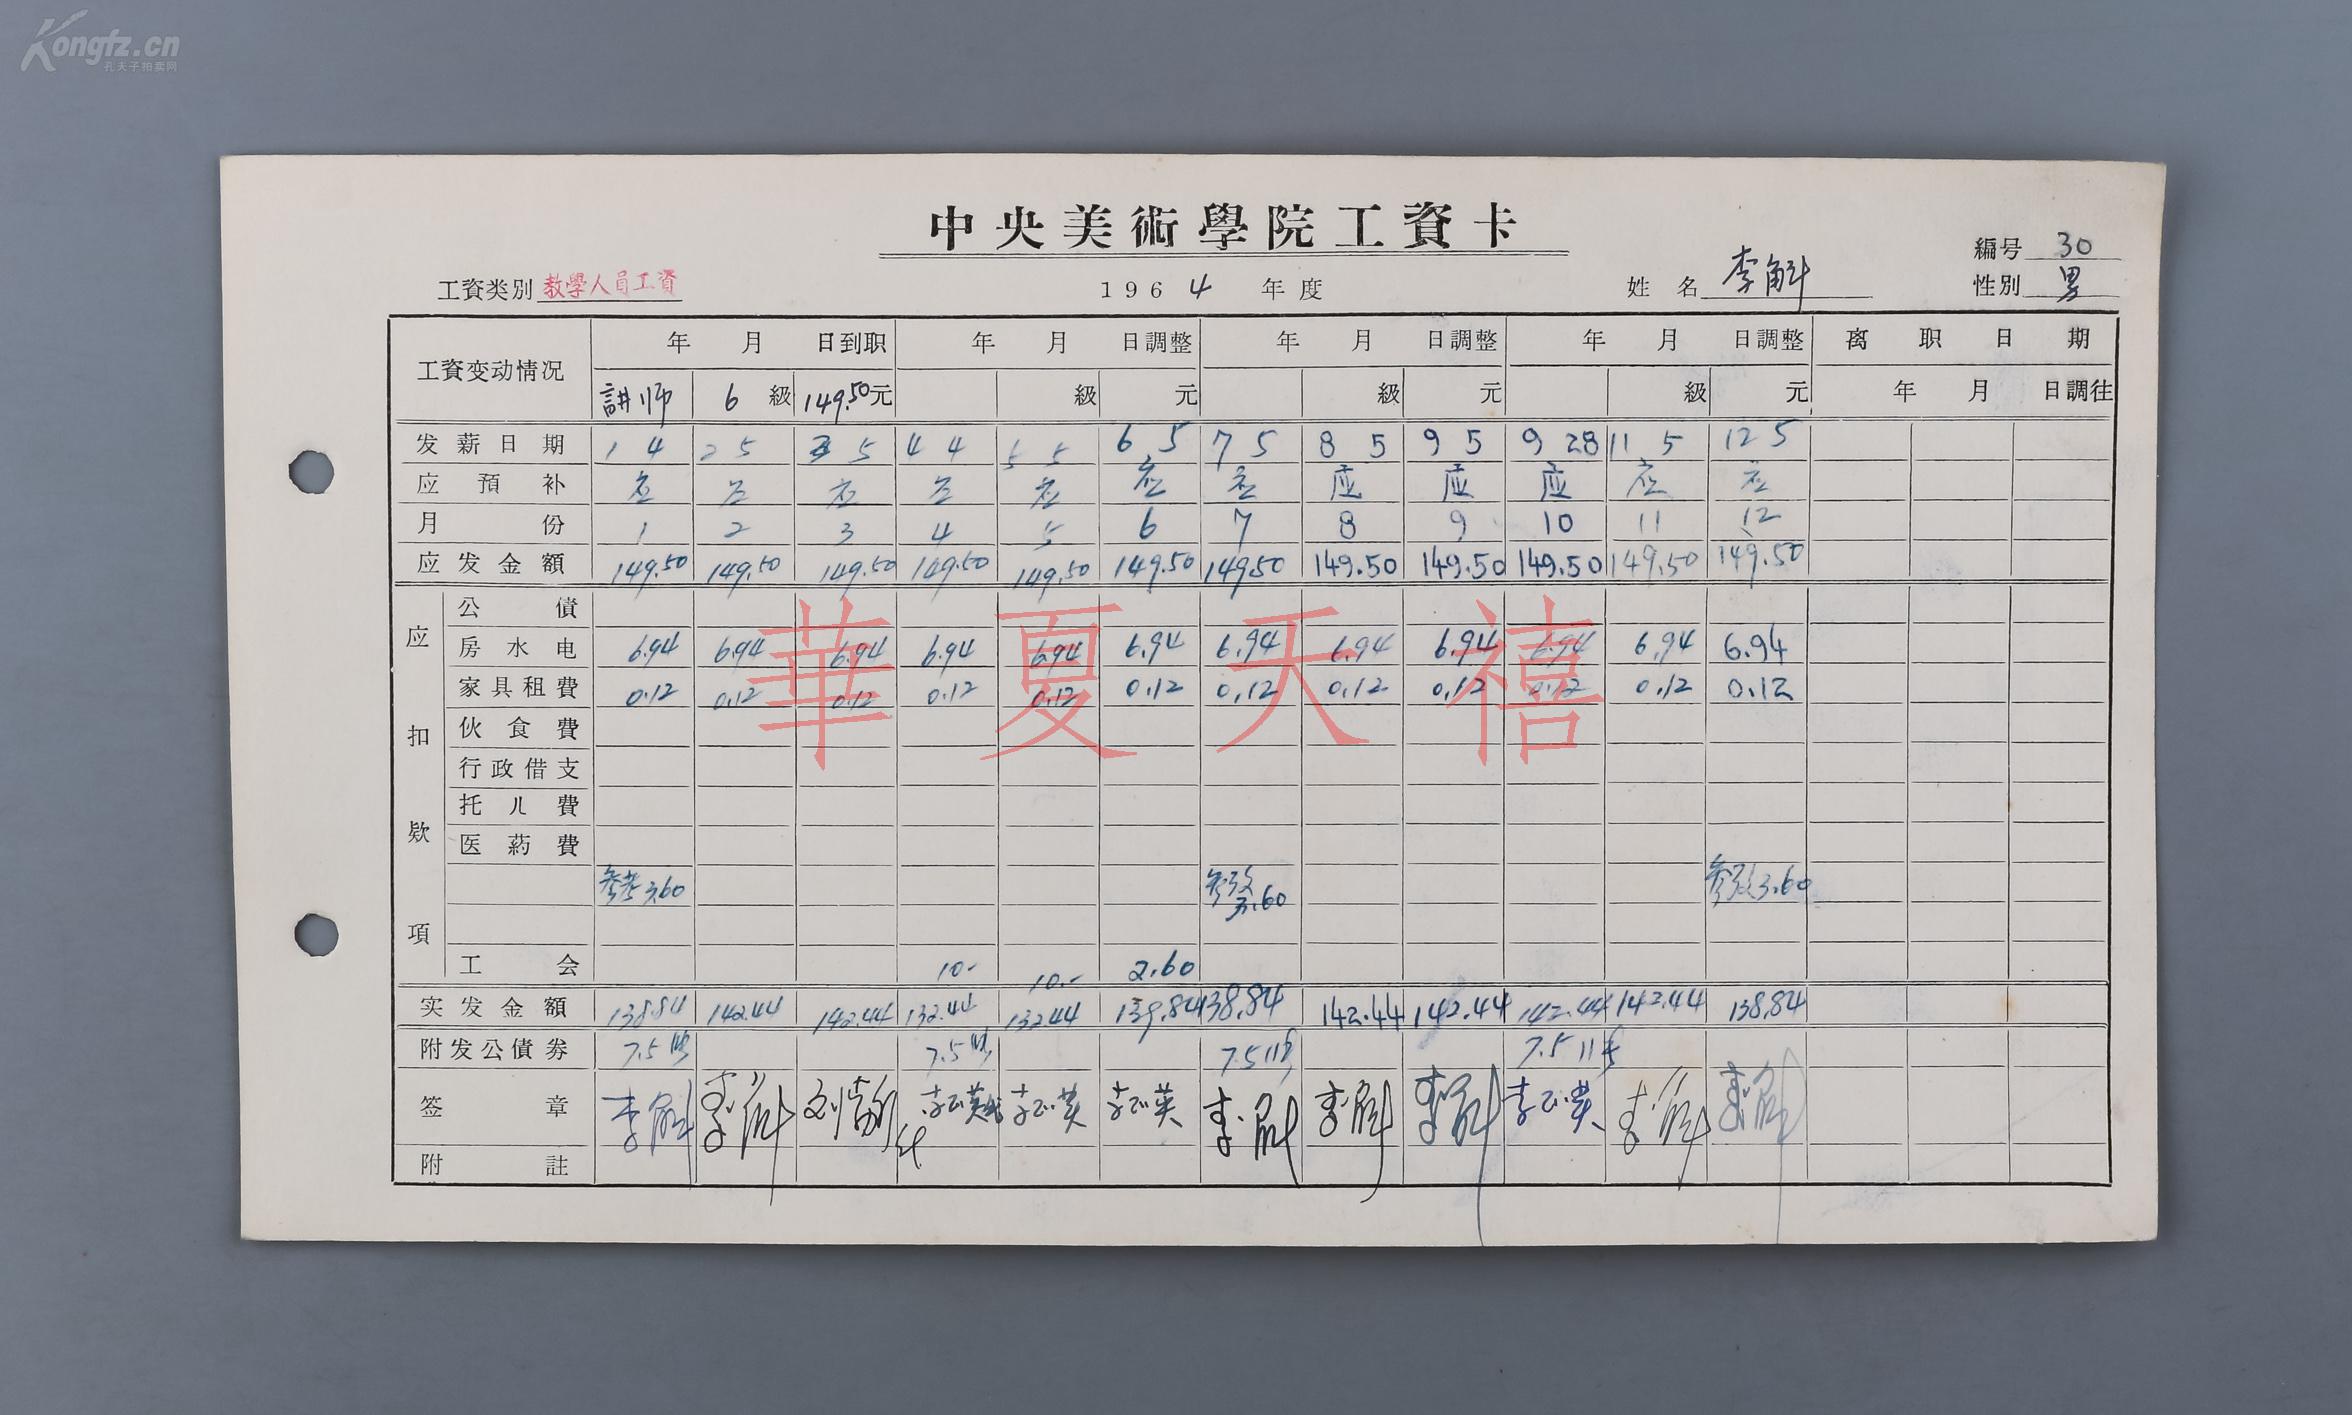 Kongfz.cn
孔夫子拍卖网
中央美術學院工資卡
工資类别 教學人員工資 1964年度 姓名 李斛 編号 30
性别 男
工資变动情况 年 月 日到职 年 月 日調整 年 月 日調整 年 月 日調整 离职日期
講师 6 級 149.50元 級 元 級 元 級 元 年 月 日調往
发薪日期 1 4 2 5 3 5 4 4 5 5 6 5 7 5 8 5 9 5 9 28 11 5 12 5
应預补 应 应 应 应 应 应 应 应 应 应 应 应
月份 1 2 3 4 5 6 7 8 9 10 11 12
应发金額 149.50 149.50 149.50 149.50 149.50 149.50 149.50 149.50 149.50 149.50 149.50 149.50
应扣欵項
公債
房水电 6.94 6.94 6.94 6.94 6.94 6.94 6.94 6.94 6.94 6.94 6.94 6.94
家具租費 0.12 0.12 0.12 0.12 0.12 0.12 0.12 0.12 0.12 0.12 0.12 0.12
華夏天禧
伙食費
行政借支
托儿費
医药費
参考3.60 3.60 3.60
工会 10.- 10.- 2.60
实发金額 138.84 142.44 142.44 132.44 132.44 139.84 138.84 142.44 142.44 142.44 142.44 138.84
附发公債券 7.5 7.5 7.5 7.5
签章 李斛 李斛 李正英 李正英 李正英 李斛 李斛 李斛 李正英 李斛 李斛
附註